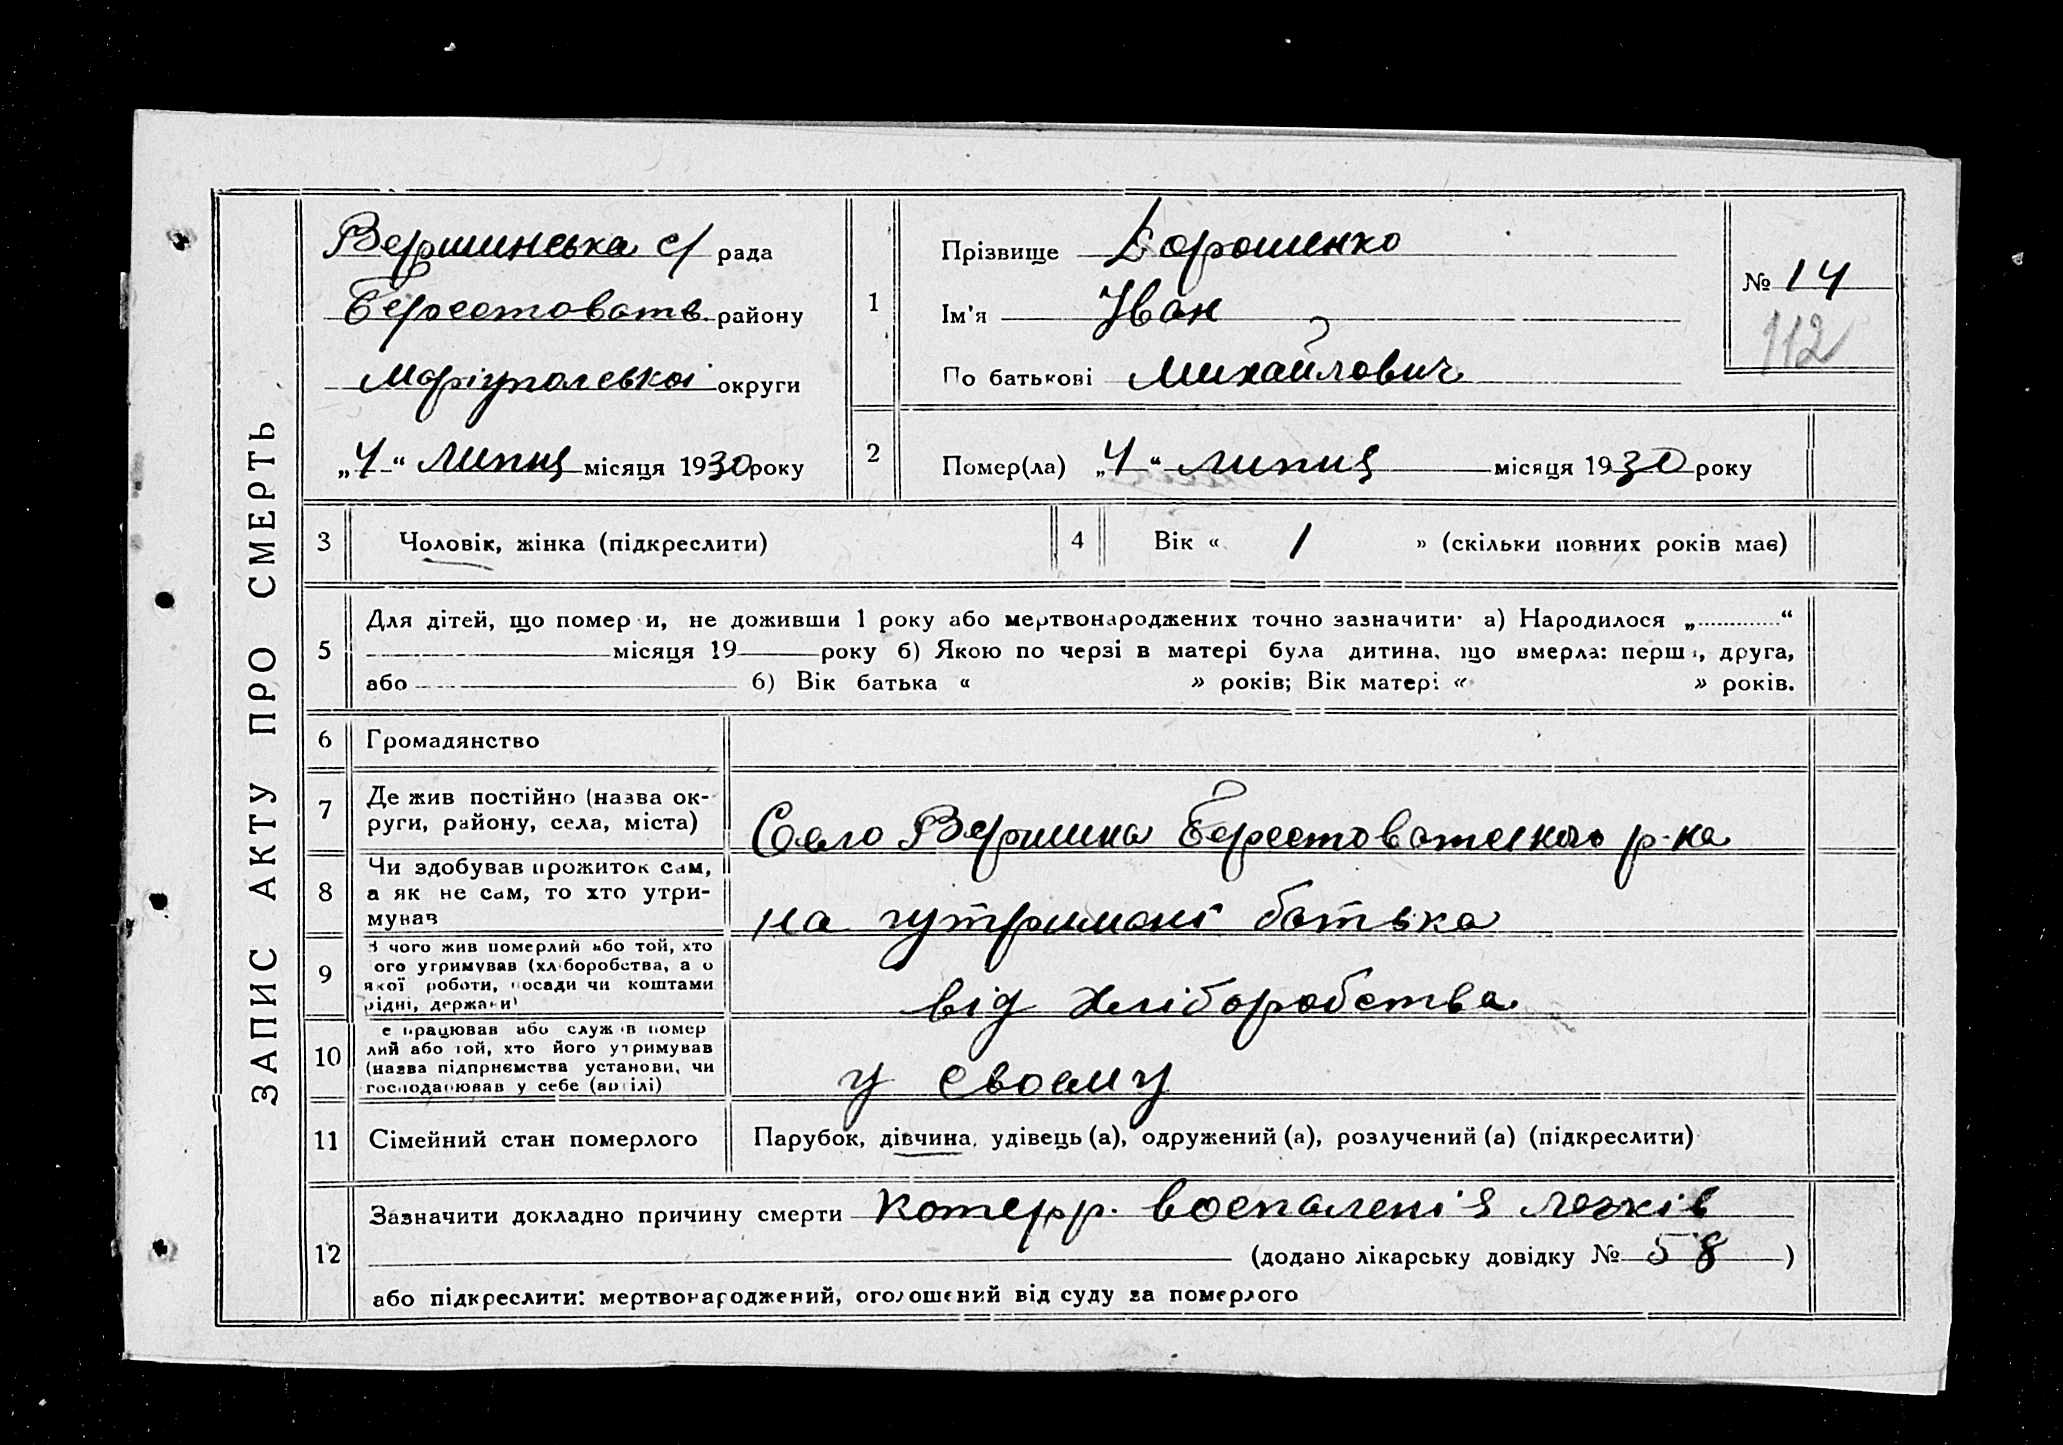 ЗАПИС АКТУ ПРО СМЕРТЬ
Вершинська с/ рада
Берестоватв. району
Маріупольскоі округи
„4“ липня місяця 1930 року
1
Прізвище Дорошенко
Ім'я Іван
По батькові Михайлович
№ 14
112
2
Помер(ла) „4“ липня місяця 1930 року
3 Чоловік, жінка (підкреслити)
4 Вік « 1 » (скільки повних років має)
5 Для дітей, що померли, не доживши 1 року або мертвонароджених точно зазначити: а) Народилося „ “
місяця 19 року б) Якою по черзі в матері була дитина, що вмерла: перша, друга,
або б) Вік батька « » років; Вік матері « » років.
6 Громадянство
7 Де жив постійно (назва ок-
руги, району, села, міста)
Село Вершина Берестоватского р-на
8 Чи здобував прожиток сам,
а як не сам, то хто утри-
мував
на утримані батька
9 З чого жив померлий або той, хто
його утримував (хліборобства, а о
якої роботи, посади чи коштами
рідні, держави)
від хліборобства
10 Де працював або служив помер
лий або той, хто його утримував
(назва підприємства установи, чи
господарював у себе (артілі)
у своєму
11 Сімейний стан померлого Парубок, дівчина, удівець (а), одружений (а), розлучений (а) (підкреслити)
12 Зазначити докладно причину смерти Катерр. воспаленія легків
(додано лікарську довідку № 58 )
або підкреслити: мертвонароджений, оголошений від суду за померлого